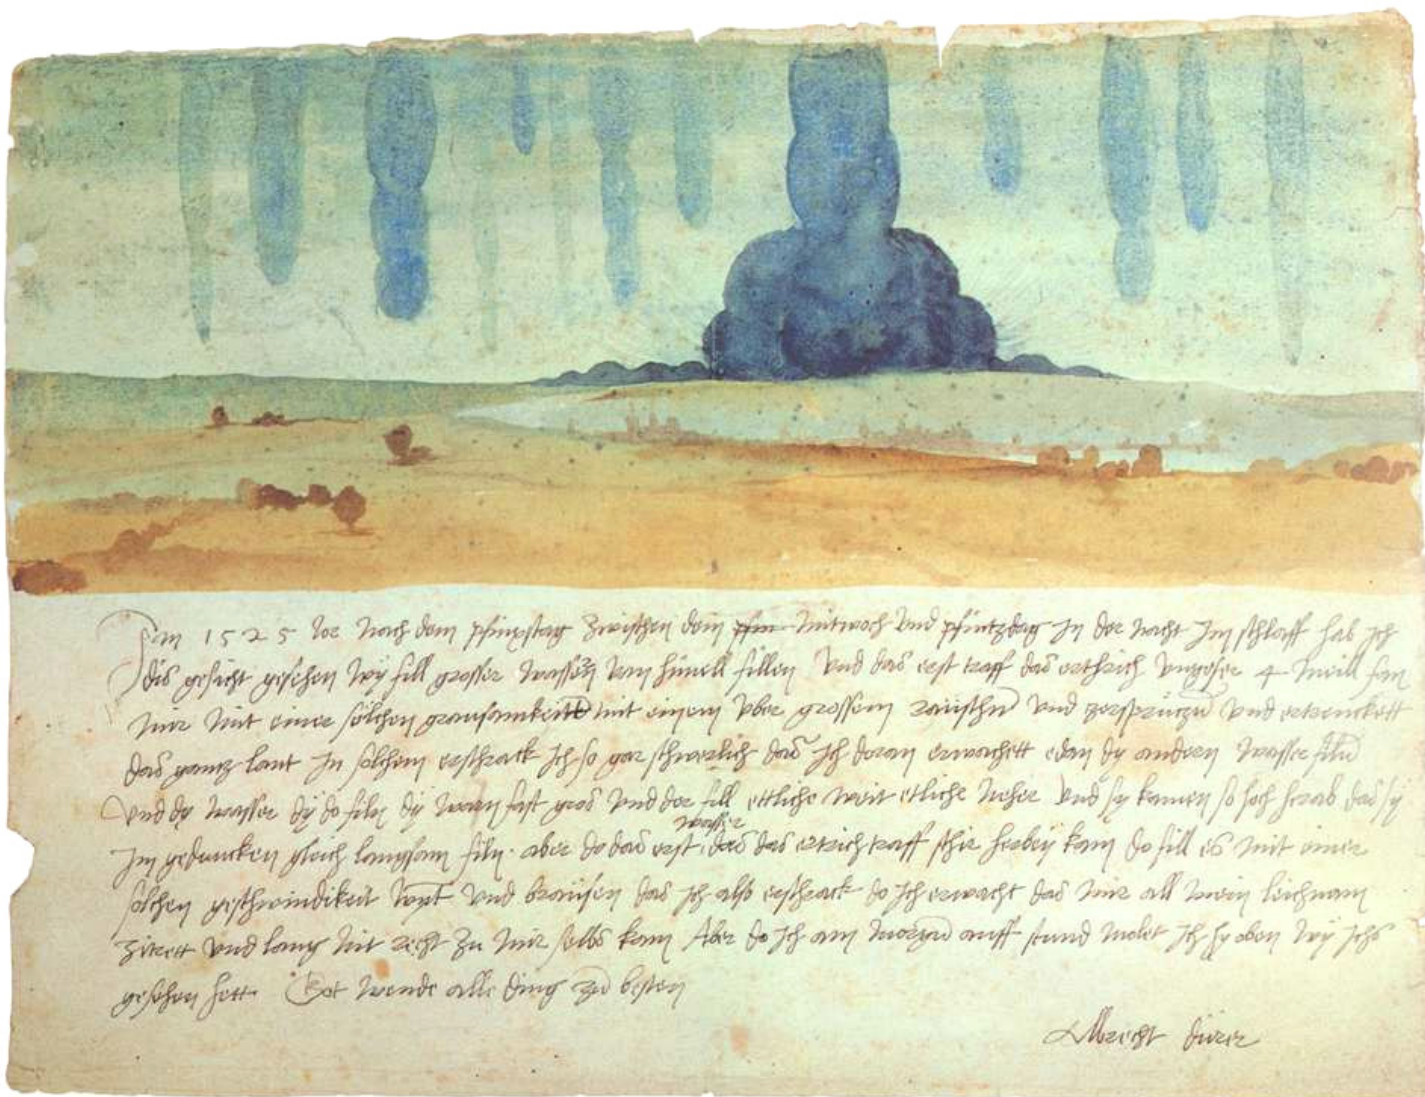 Im 1525 Jor nach dem pfinxstag zwischen dem pfin mitwoch und pfintzdag in der nacht im schlaff hab ich
dis gesicht gesehen wy fill grosser wassern vom himell fillen Vnd das erst traff das erthrich vngefer 4 meill fan
mir mit einer solchen grausamkeitt mit einem vber grossem raüschn vnd zersprützn vnd ertrenckett
das gantz lant In solchem erschrack ich so gar schwerlich das ich doran erwachett edan dy andern wasser filn
Vnd dy wasser dy do filn dy warn fast gros vnd der fill ettliche weit etliche neher vnd sy kamen so hoch herab das sy
im gedancken gleich langsam filn. aber do das erst wasser das das ertrich traff schir herbey kam do fill es mit einer
solchen geschwindikeit wynt vnd braüsen das ich also erschrack do ich erwacht das mir all mein leichnam
zitrett vnd lang nit recht zu mir selbs kam Aber do ich am morgn auff stund molet ich hy oben wy ichs
gesehen hett. Got wende alle ding zw besten
Albrecht dürer